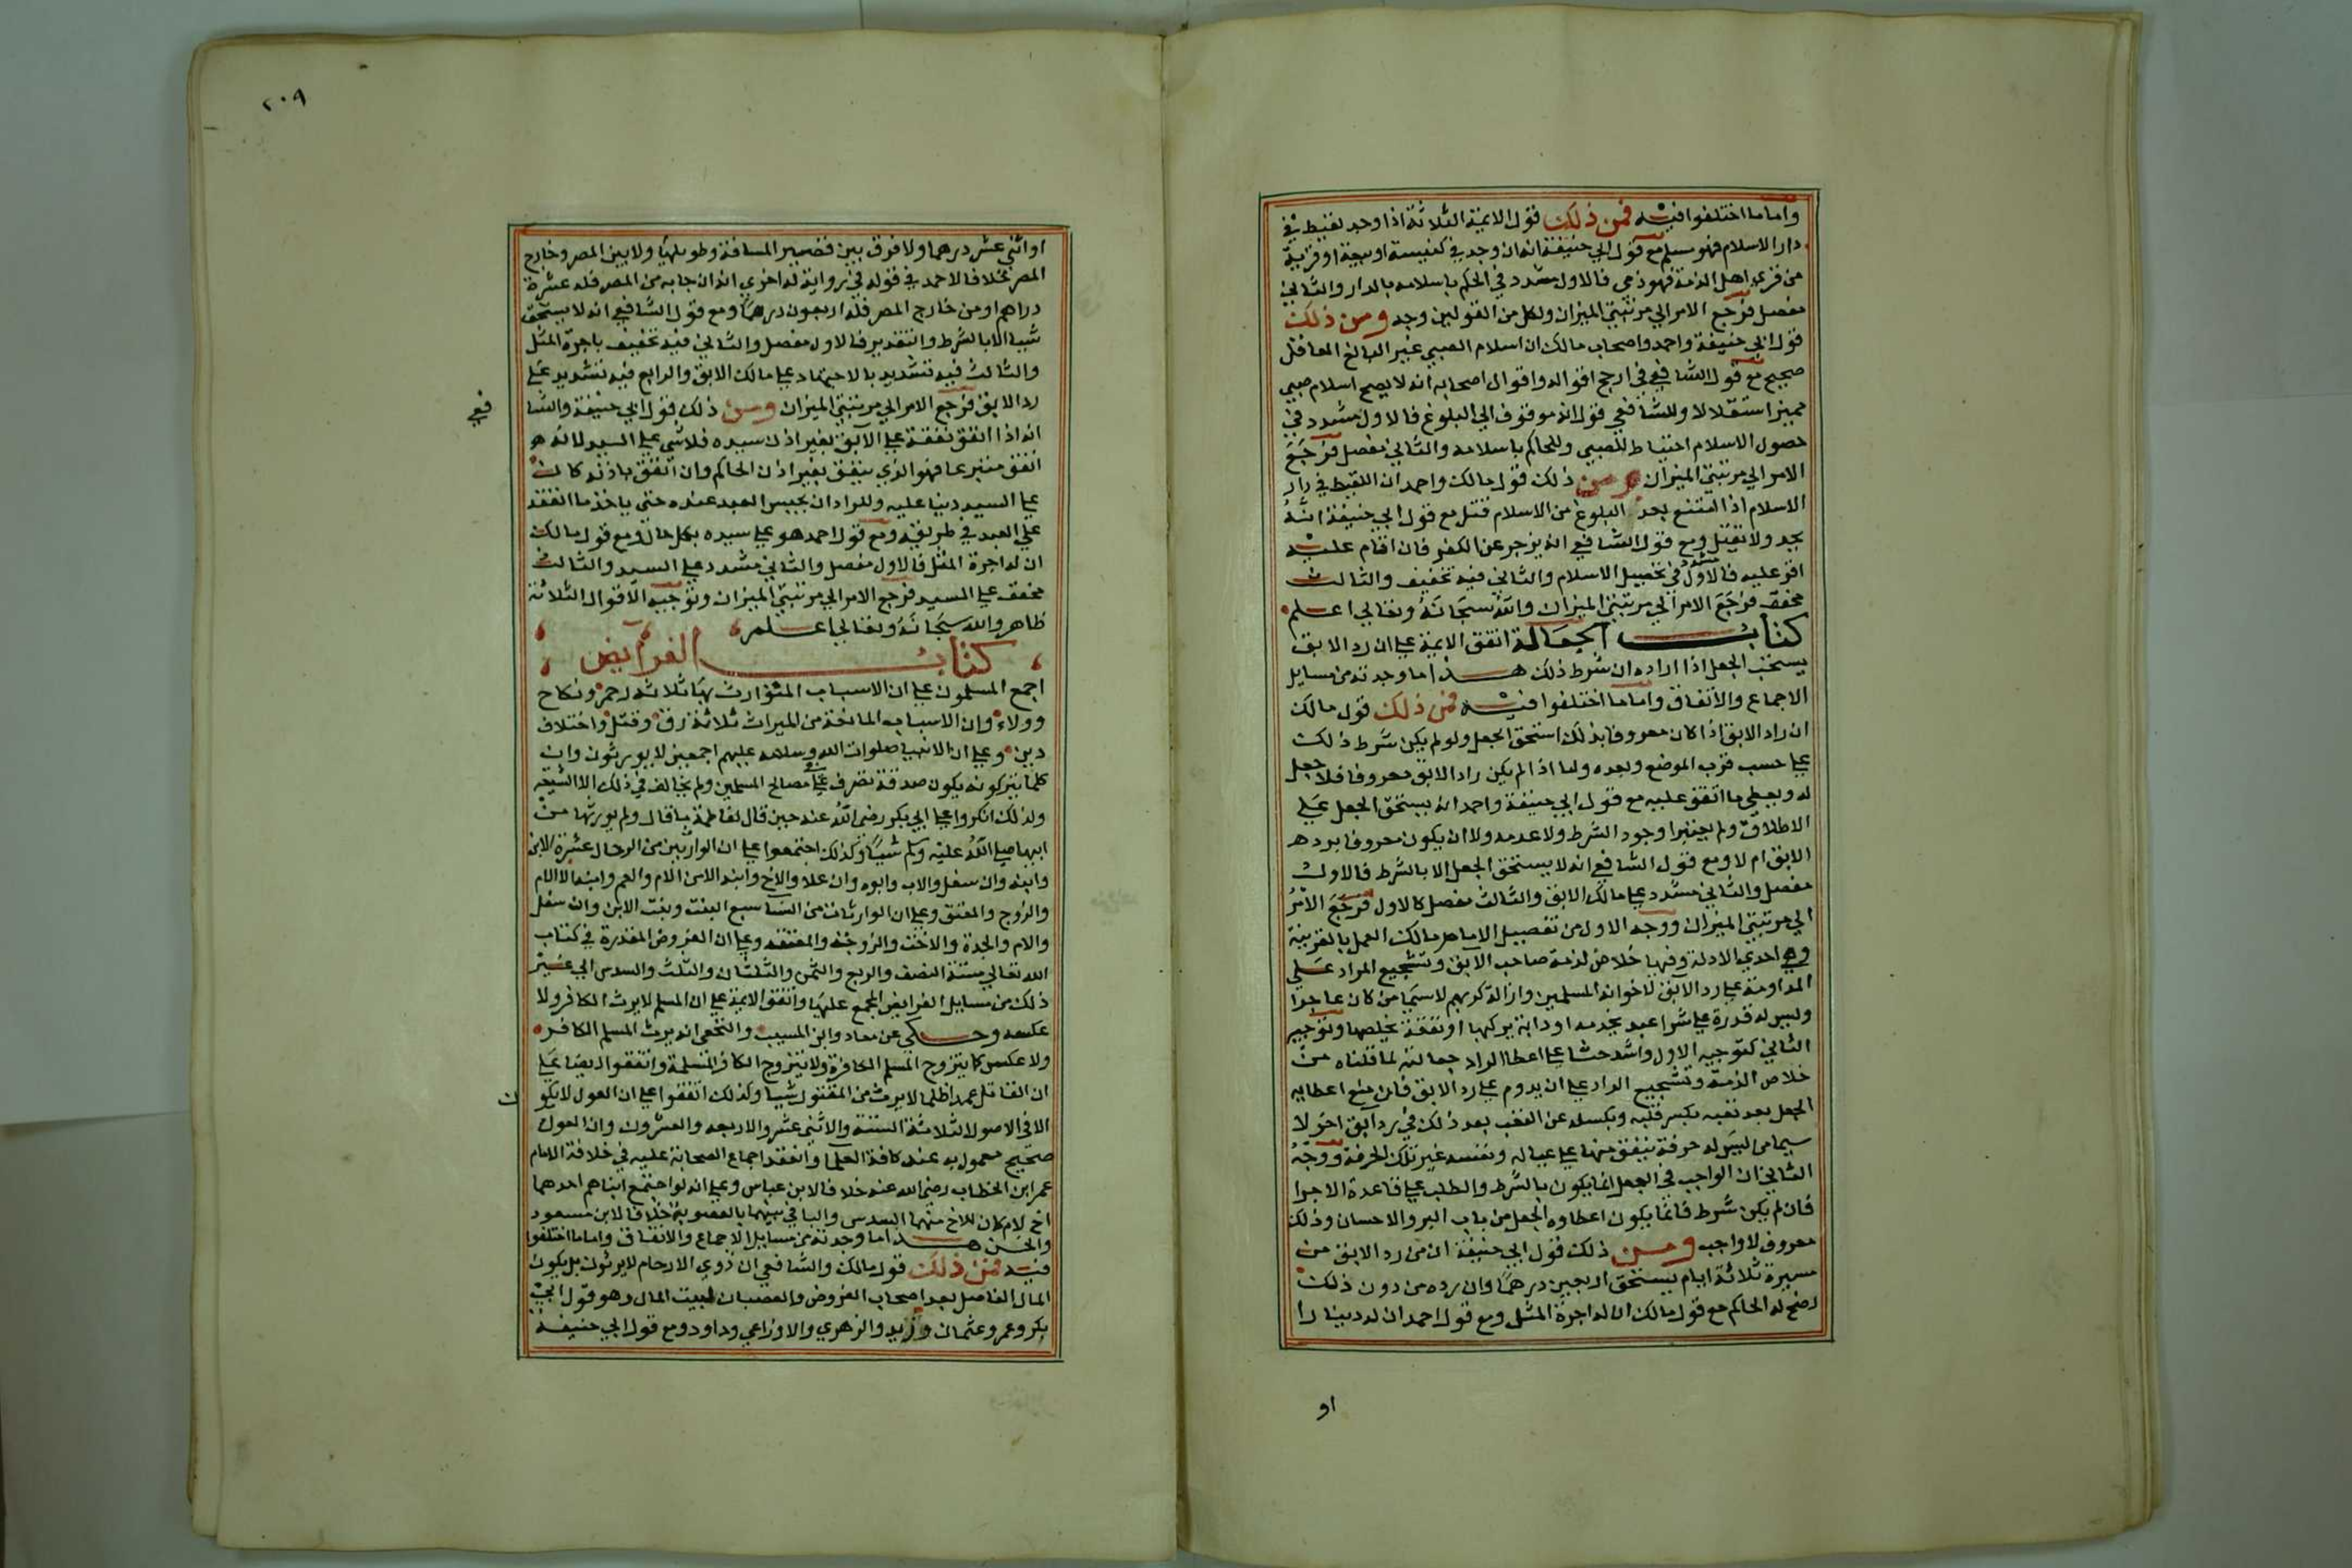 واما ما اختلفوا فيه فمن ذلك قول الايمة الثلاثة اذا وجد لقيط في
دار الاسلام فهو مسلم مع قول ابي حنيفة انه ان وجد في كنيسة او بيعة او قرية
من قري اهل الذمة فهو ذمي فالاول مشدد في الحكم باسلامه بالدار والثاني
مفصل فرجع الامر الي مرتبتي الميزان ولكل من القولين وجه ومن ذلك
قول ابي حنيفة واحمد واصحاب مالك ان اسلام الصبي غير البالغ العاقل
صحيح مع قول الشافعي في ارجح اقواله واقوال اصحابه انه لا يصح اسلام صبي
مميز استقلالا وللشافعي قول انه موقوف الي البلوغ فالاول مشدد في
حصول الاسلام احتياط للصبي وللحاكم باسلامه والثاني مفصل فرجع
الامر الي مرتبتي الميزان ومن ذلك قول مالك واحمد ان اللقيط في دار
الاسلام اذا امتنع بعد البلوغ من الاسلام قتل مع قول ابي حنيفة انه
يحد ولا يقتل ومع قول الشافعي انه يزجر عن الكفر فان اقام عليه
اقر عليه فالاول مشدد في تحصيل الاسلام والثاني فيه تخفيف والثالث
مخفف فرجع الامر الي مرتبتي الميزان والله سبحانه وتعالي اعلم
كتاب الجعالة اتفق الايمة علي ان رد الابق
يستحق الجعل اذا اراده ان شرط ذلك هذا ما وجدته من مسايل
الاجماع والاتفاق واما ما اختلفوا فيه فمن ذلك قول مالك
ان راد الابق اذا كان معروفا بذلك استحق الجعل ولو لم يكن شرط ذلك
علي حسب قرب الموضع وبعده واما اذا لم يكن راد الابق معروفا فلا جعل
له ويعطي ما انفق عليه مع قول ابي حنيفة واحمد انه يستحق الجعل علي
الاطلاق ولم يعتبرا وجود الشرط ولا عدمه ولا ان يكون معروفا برده
الابق ام لا ومع قول الشافعي انه لا يستحق الجعل الا بالشرط فالاول
مفصل والثاني مشدد علي مالك الابق والثالث مفصل كالاول فرجع الامر
الي مرتبتي الميزان ووجه الاول من تفصيل الامام مالك العمل بالقرينة
وهي احدي الادلة وفيها خلاص لذمة صاحب الابق وتشجيع المراد علي
المداومة علي رد الابق لاخوانه المسلمين وازالة كربهم لا سيما من كان عاجزا
وليس له قدرة علي شرا عبد يخدمه او دابة يركبها او نفقة يخلصها وتوجيه
الثاني كتوجيه الاول واشد حثا علي اعطا الراد جعالته لما قلناه من
خلاص الذمة وتشجيع الراد علي ان يدوم علي رد الابق فان منع اعطايه
الجعل بعد تعبه يكسر قلبه ويكسله عن التعب بعد ذلك في رد ابق اخر لا
سيما من ليس له حرفة ينفق منها علي عياله ونفسه غير تلك الحرفة ووجه
الثاني ان الواجب في الجعل انما يكون بالشرط والطلب علي قاعدة الاجرا
فان لم يكن شرط فانما يكون اعطاوه الجعل من باب البر والاحسان وذلك
معروف لا واجب ومن ذلك قول ابي حنيفة ان من رد الابق من
مسيرة ثلاثة ايام يستحق اربعين درهما وان رده من دون ذلك
رضخ له الحاكم مع قول مالك ان له اجرة المثل ومع قول احمد ان له دينارا
او
٢٠٩
او اثني عشر درهما ولا فرق بين قصير المسافة وطويلها ولا بين المصر وخارج
المصر خلافا لاحمد في قوله في رواية له اخري انه ان جا به من المصر فله عشرة
دراهم او من خارج المصر فله اربعون درهما ومع قول الشافعي انه لا يستحق
شيا الا بالشرط والتقدير فالاول مفصل والثاني فيه تخفيف باجرة المثل
والثالث فيه تشديد بالاجتهاد علي مالك الابق والرابع فيه تشديد علي
رد الابق فرجع الامر الي مرتبتي الميزان ومن ذلك قول ابي حنيفة والشا
فعي
انه اذا انفق نفقة علي الابق بغير اذن سيده فلا شي علي السيد لانه هو
انفق متبرعا فهو الذي ينفق بغير اذن الحاكم وان انفق باذنه كان
علي السيد دينا عليه وللراد ان يحبس العبد عنده حتي ياخذ ما انفقه
علي العبد في طريقه ومع قول احمد هو علي سيده بكل حال ومع قول مالك
ان له اجرة المثل فالاول مفصل والثاني مشدد علي السيد والثالث
مخفف علي السيد فرجع الامر الي مرتبتي الميزان وتوجيه الاقوال الثلاثة
ظاهر والله سبحانه وتعالي اعلم
كتاب الفرايض
اجمع المسلمون علي ان الاسباب المتوارث بها ثلاثه رحم ونكاح
وولاء وان الاسباب المانعة من الميراث ثلاثة رق وقتل واختلاف
دين وعلي ان الانبيا صلوات الله وسلامه عليهم اجمعين لا يورثون وان
كلما يتركونه يكون صدقة تصرف علي مصالح المسلمين ولم يخالف في ذلك الا الشيعه
ولذلك انكروا علي ابي بكر رضي الله عنه حين قال لفاطمة ما قال ولم يورثها من
ابيها صلي الله عليه وسلم شيا وكذلك اجتمعوا علي ان الوارثين من الرجال عشرة الابن
وابنه وان سفل والاب وابوه وان علا والاخ وابنه الا من الام والعم وابنه الا الام
والزوج والمعتق وعلي ان الوارثات من النسا سبع البنت وبنت الابن وان سفل
والام والجدة والاخت والزوجة والمعتقه وعلي ان الفروض المقدرة في كتاب
الله تعالي ستة النصف والربع والثمن والثلثان والثلث والسدس الي غير
ذلك من مسايل الفرايض المجمع عليها واتفق الايمة علي ان المسلم لا يرث الكافر ولا
عكسه وحكي عن معاد وابن المسيب والنخعي انه يرث المسلم الكافر
ولا عكس كما يتزوج المسلم الكافرة ولا يتزوج الكافر المسلمة واتفقوا ايضا علي
ان القاتل عمدا ظلما لا يرث من المقتول شيا وكذلك اتفقوا علي ان العول لا يكو
ن
الا في الاصول الثلاثة الستة والاثني عشر والاربعه والعشرون وان العول
صحيح معمول به عند كافة العلما وانعقد اجماع الصحابة عليه في خلافة الامام
عمر ابن الخطاب رضي الله عنه خلافا لابن عباس وعلي انه لو اجتمع ابنا هم احدهما
اخ لام كان للاخ منهما السدس والباقي بينهما بالعصوبة خلافا لابن مسعود
والحسن هذا ما وجدته من مسايل الاجماع والاتفاق واما ما اختلفوا
فيه فمن ذلك قول مالك والشافعي ان ذوي الارحام لا يرثون بل يكون
المال الفاضل بعد اصحاب الفروض والعصبات لبيت المال وهو قول ابي
بكر وعمر وعثمان وزيد والزهري والاوزاعي وداود ومع قول ابي حنيفة